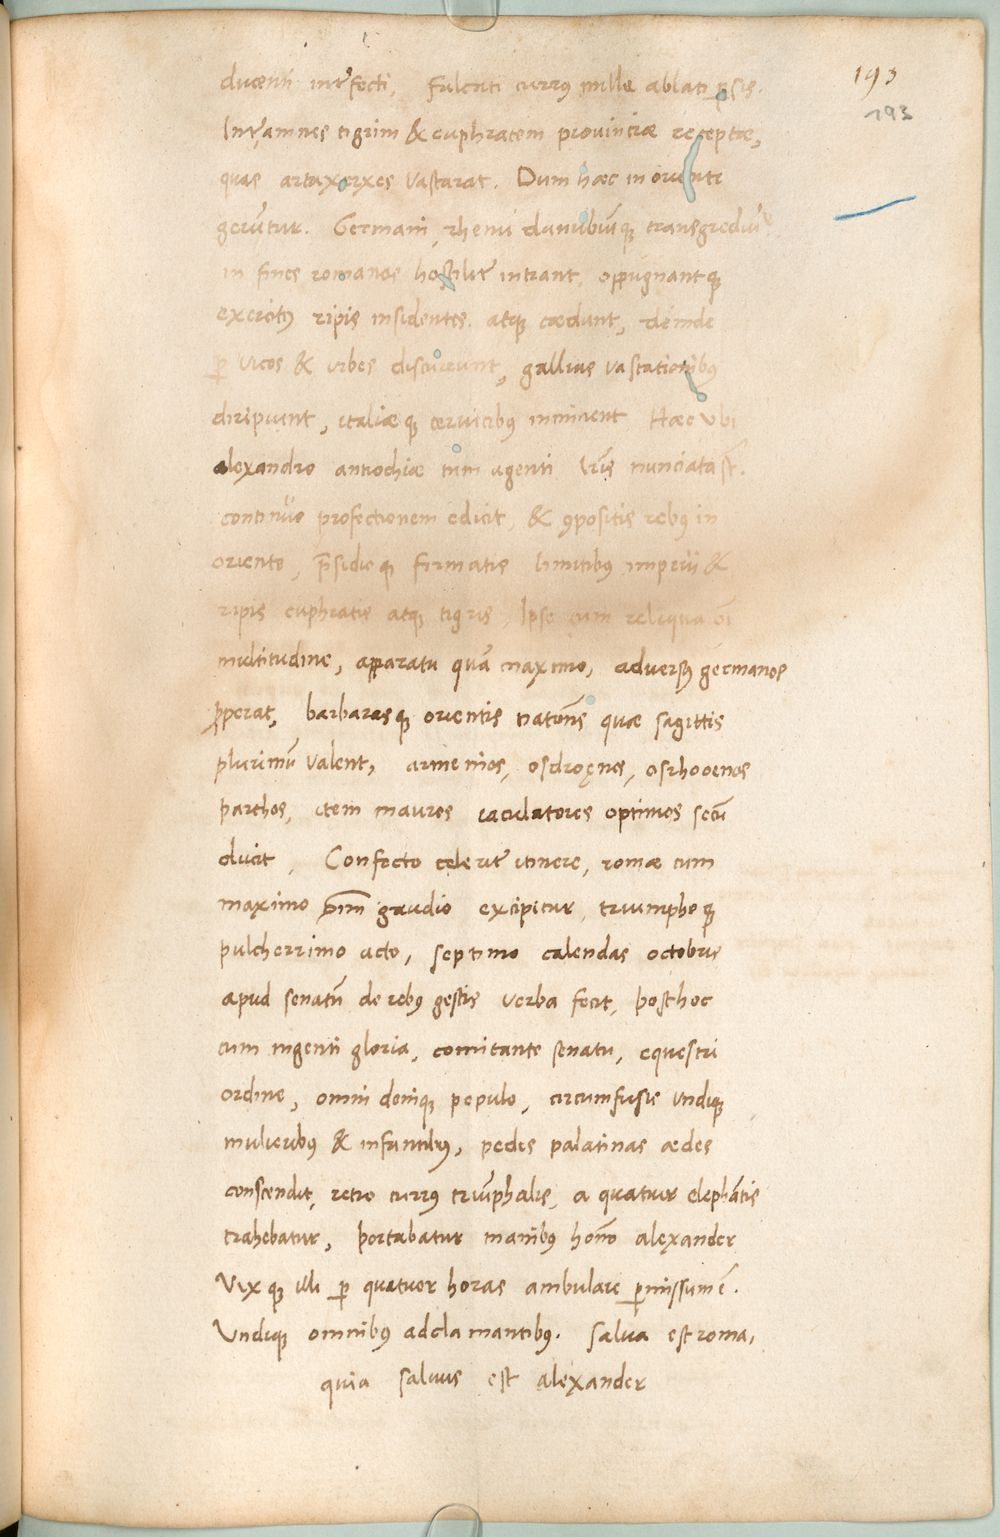 193
193
ducenti inťfecti, falcati currus mille ablati ꝑsis.
Inťamnes tigrim & euphratem provintiæ receptæ,
quas artaxerxes vastarat. Dum hæc in oriente
gerūtur. Germani, rheni danubiūq; transgrediū
in fines romanos hostiliť intrant, oppugnantq;
exercitus ripis insidentes. atq; cædunt, deinde
ꝑ vicos & urbes discurrunt, gallias vastationibus
diripiunt, italiæq; cervicibus imminent Hæc ubi
alexandro antiochiæ tum agenti lr̄is nunciata st̄.
continuo profectionem edicit, & ꝯpositis rebus in
oriente, p̄sidioq; firmatis limitibus imperii &
ripis euphratis atq; tigris, Ipse cum reliqua oī
multitudine, apparatu quā maximo, adversus germanos
ꝓperat, barbarasq; orientis natiōn̄s quæ sagittis
plurimū valent, armenios, osdroęnos, osrhooenos
parthos, item mauros iaculatores optimos secū
ducit, Confecto celeriť itinere, romæ cum
maximo om̄m gaudio excipitur, triumphoq;
pulcherrimo acto, septimo calendas octobris
apud senatū de rebus gestis verba fecit, post hoc
cum ingenti gloria, comitante senatu, equestri
ordine, omni deniq; populo, circumfusis undiq;
mulieribus & infantibus, pedes palatinas ædes
conscendit, retro currus triūphalis, a quatuor elephātis
trahebatur, portabatur manibus hoīm alexander
Vixq; illi ꝑ quatuor horas ambulare ꝑmissum ē.
Undiq; omnibus adclamantibus. salva est roma,
quia salvus est alexander